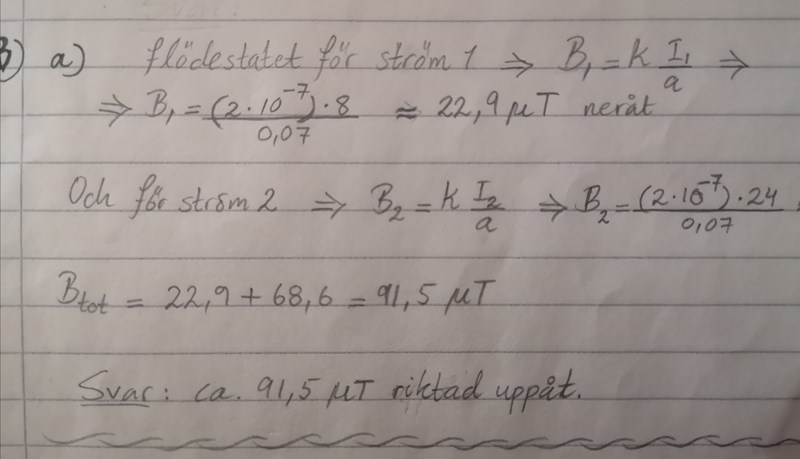 3) a) flödestatet för ström 1 ⇒ B₁ = k I₁/a ⇒
⇒ B₁ = (2·10⁻⁷)·8/0,07 ≈ 22,9 μT neråt
Och för ström 2 ⇒ B₂ = k I₂/a ⇒ B₂ = (2·10⁻⁷)·24/0,07
B_tot = 22,9 + 68,6 = 91,5 μT
Svar: ca. 91,5 μT riktad uppåt.